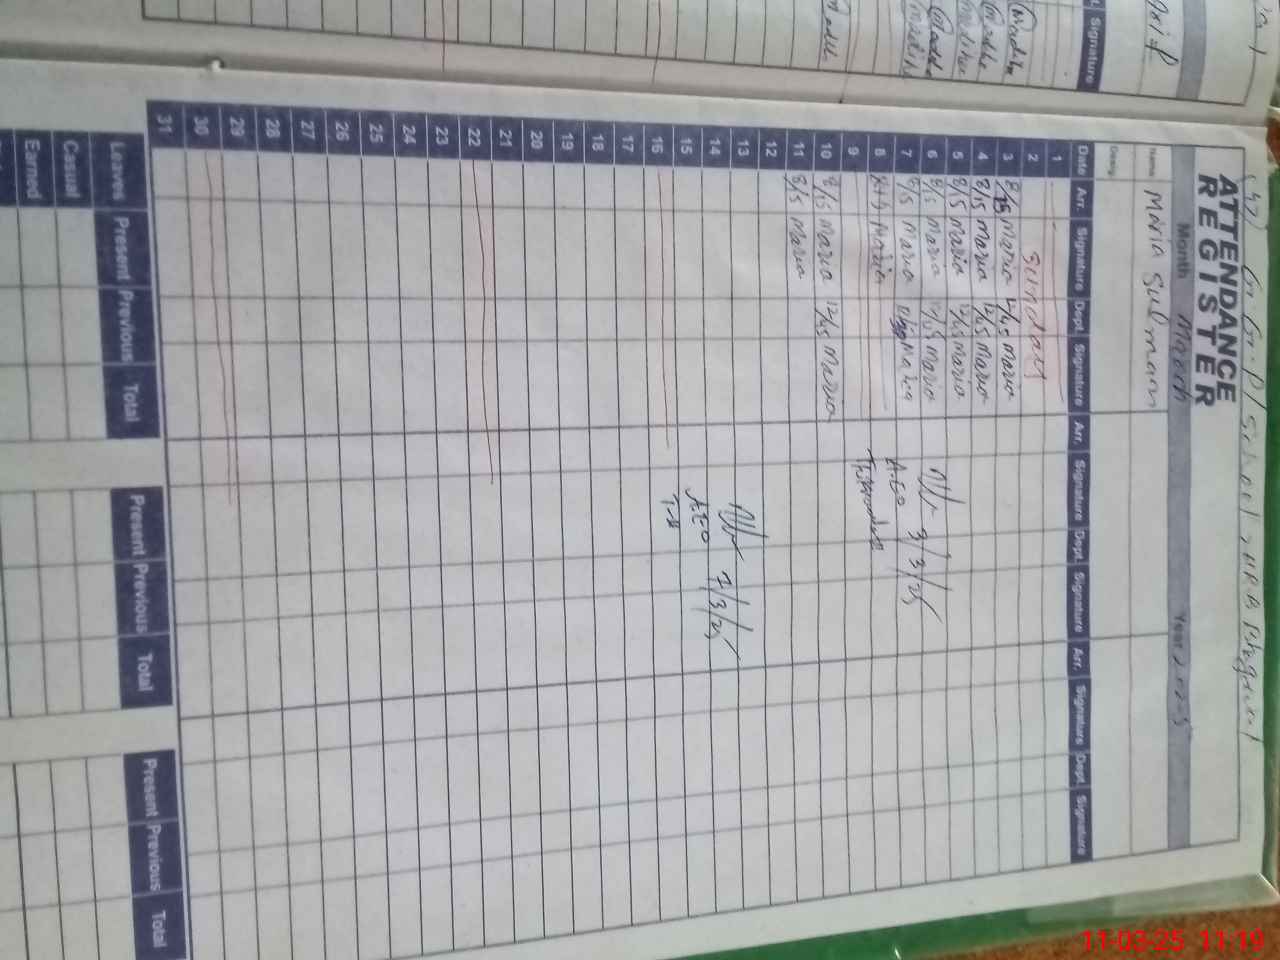 Signature
ATTENDANCE
REGISTER
Month March Year 2025
Name Maria Sulman
Desig.
Date Arr. Signature Dept. Signature Arr. Signature Dept. Signature Arr. Signature Dept. Signature
1
2 Sunday
3 8/15 Maria 12/45 Maria
4 8/15 Maria 12/45 Maria
5 8/15 Maria 12/45 Maria
6 8/15 Maria 12/45 Maria
7 8/15 Maria Maria
8 Maria
9
10 8/15 Maria 12/45 Maria
11 8/15 Maria
12
13
14
15
16
17
18
19
20
21
22
23
24
25
26
27
28
29
30
31
3/3/25
A.E.O
7/3/25
A.E.O
Leaves Present Previous Total Present Previous Total Present Previous Total
Casual
Earned
11-03-25 11:19